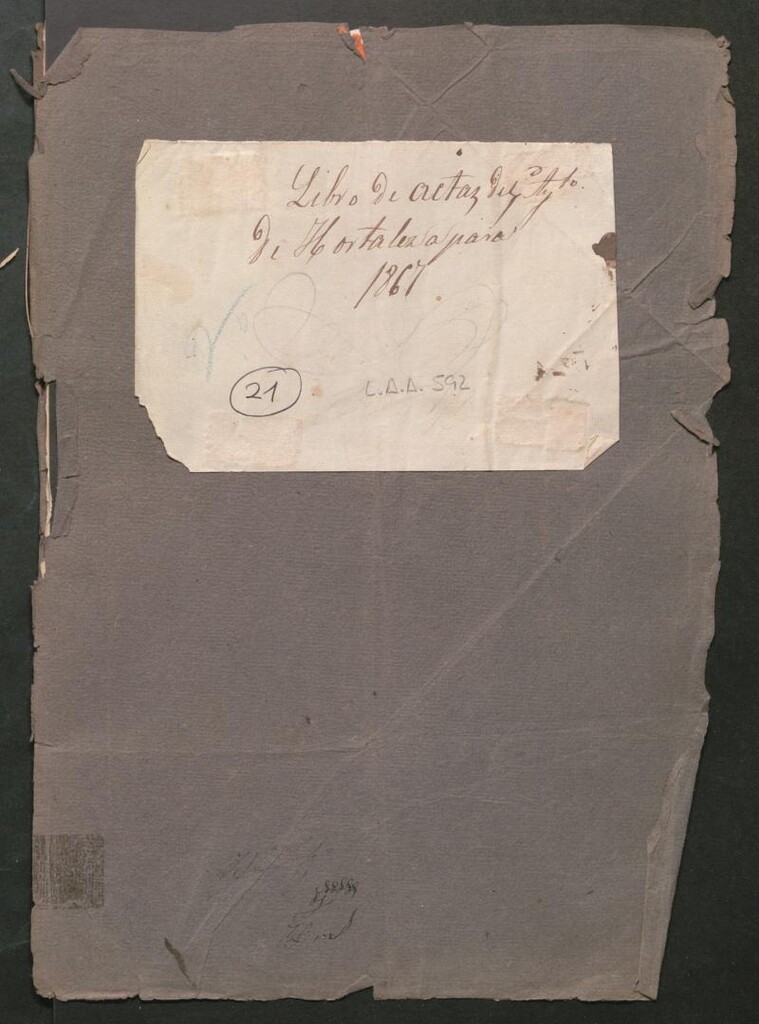 Libro de actas del Ayto.
de Hortaleza para
1867
21
L.A.A. 592